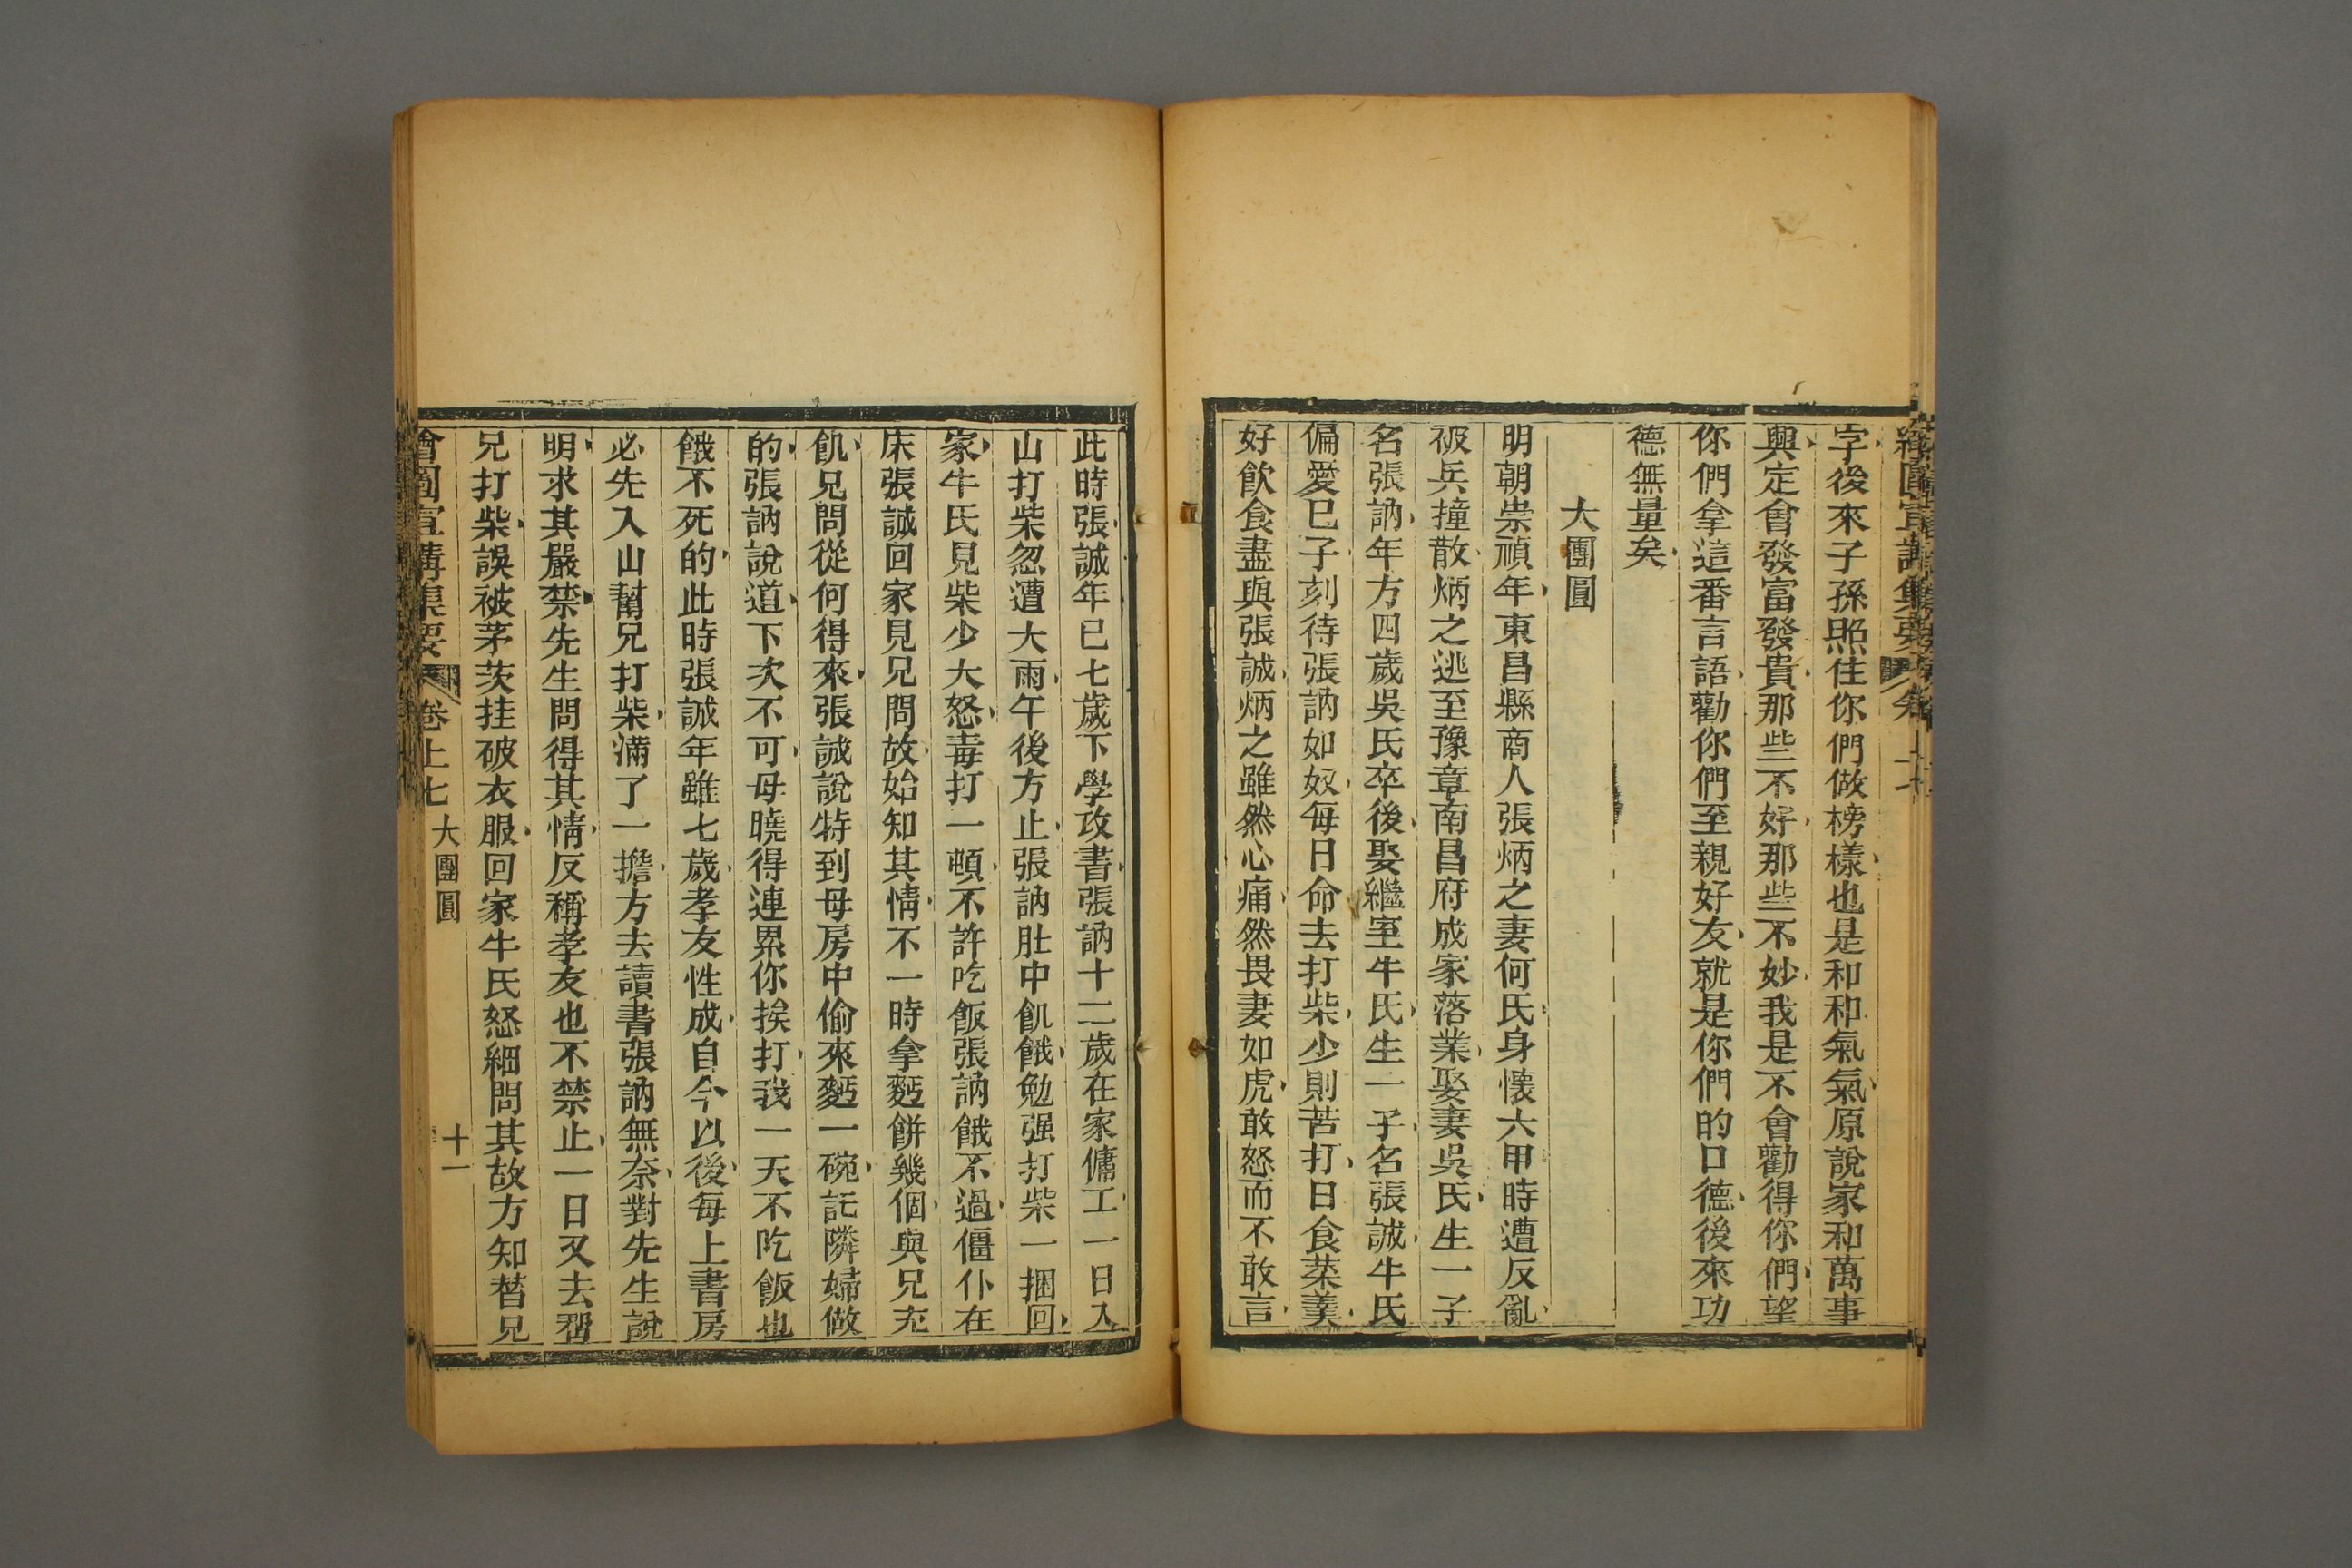 字後來子孫照住你們做榜樣也是和和氣氣原說家和萬事
興定會發富發貴那些不好那些不妙我是不會勸得你們望
你們拿這番言語勸你們至親好友就是你們的口德後來功
德無量矣
大團圓
明朝崇禎年東昌縣商人張炳之妻何氏身懐六甲時遭反亂
被兵撞散炳之逃至豫章南昌府成家落業娶妻吳氏生一子
名張訥年方四歲吳氏卒後娶繼室牛氏生一子名張誠牛氏
偏愛已子刻待張訥如奴每日命去打柴少則苦打日食菜羹
好飲食盡與張誠炳之雖然心痛然畏妻如虎敢怒而不敢言
此時張誠年已七歲下學攻書張訥十二歲在家傭工一日入
山打柴忽遭大雨午後方止張訥肚中飢餓勉强打柴一捆回
家牛氏見柴少大怒毒打一頓不許吃飯張訥餓不過僵仆在
床張誠回家見兄問故始知其情不一時拿麪餅幾個與兄充
飢兄問從何得來張誠說特到母房中偷來麪一碗託隣婦做
的張訥說道下次不可母曉得連累你挨打我一天不吃飯也
餓不死的此時張誠年雖七歲孝友性成自今以後每上書房
必先入山幫兄打柴滿了一擔方去讀書張訥無奈對先生說
明求其嚴禁先生問得其情反稱孝友也不禁止一日又去帮
兄打柴誤被茅茨挂破衣服回家牛氏怒細問其故方知替兄
會圖宣講集要 卷上七 大團圓 十一